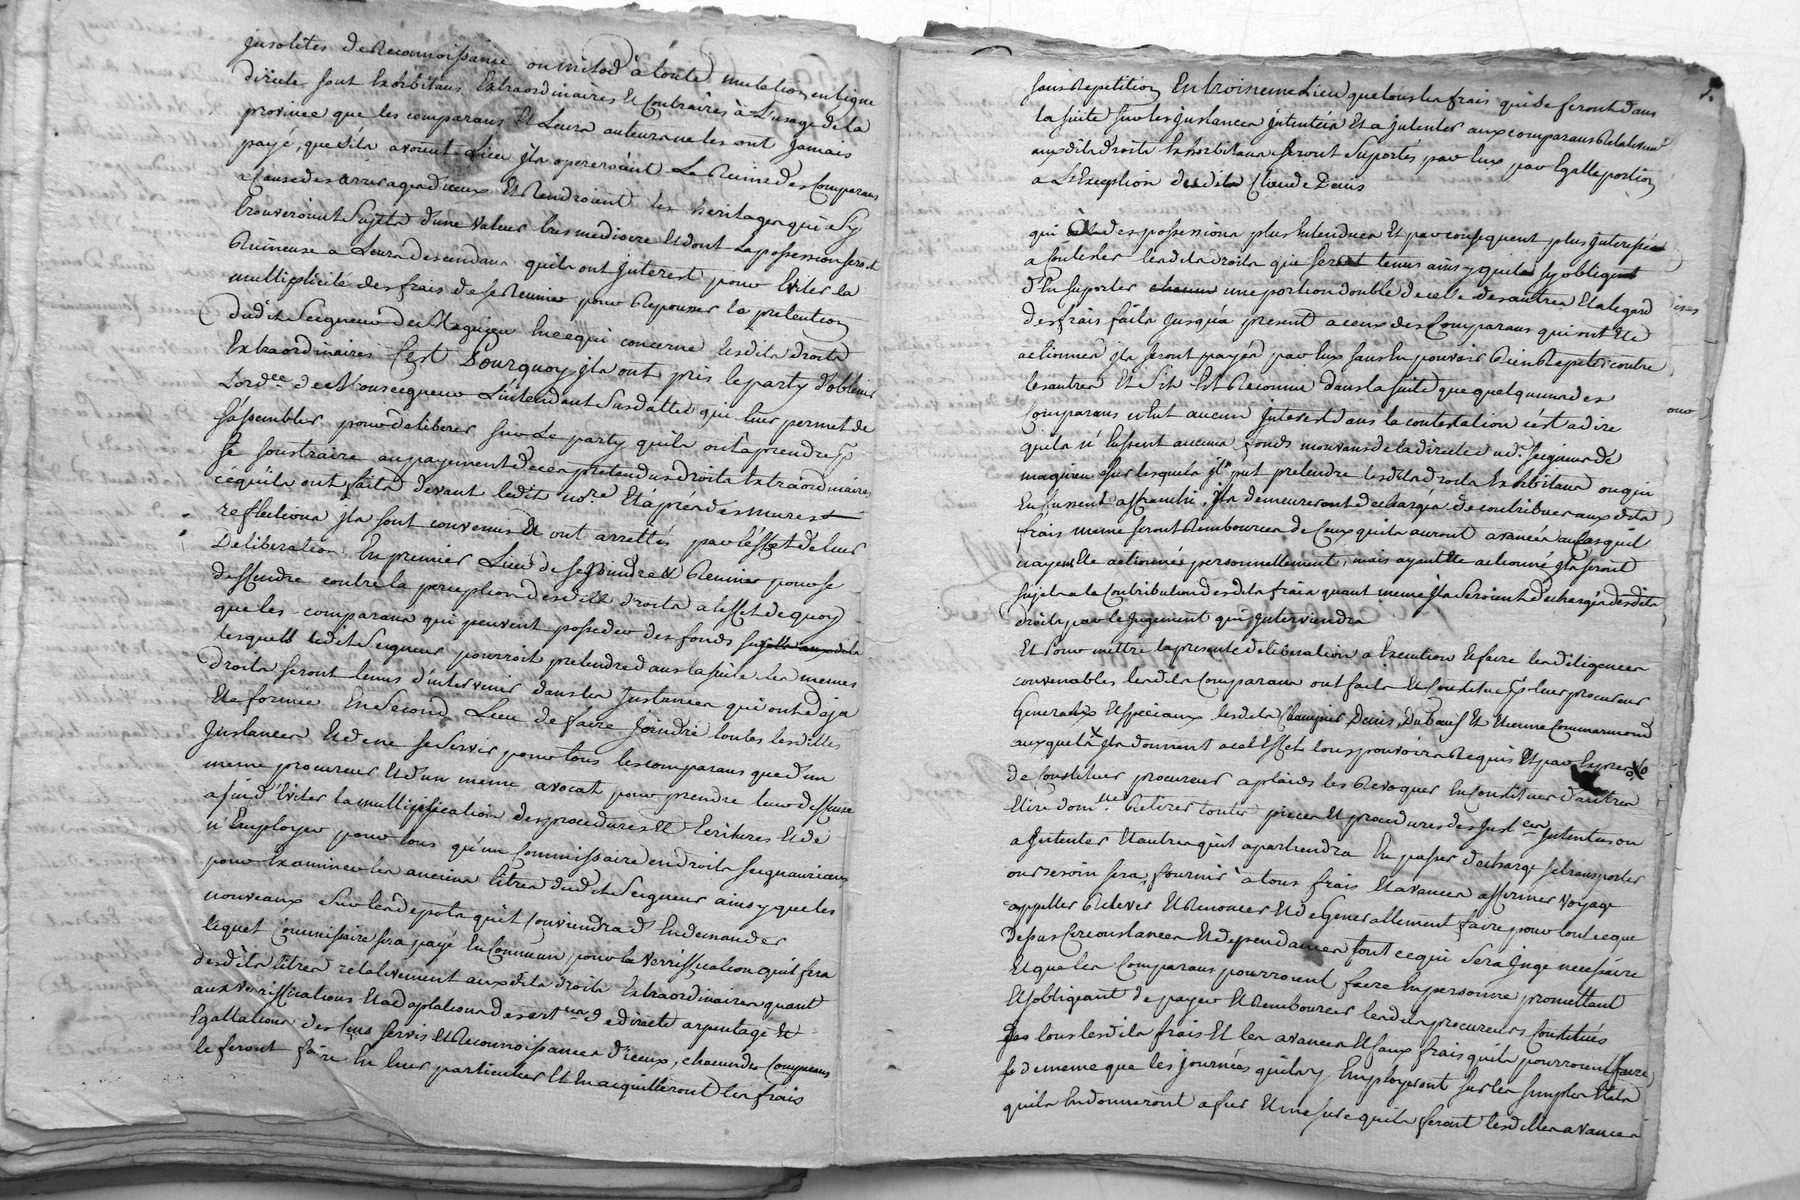 insolites de Reconnoissance ou milod à toute mutation en ligne
directe sont Exhorbitans Extraordinaires Et Contraires à L'usage de la
province que les comparans Et Leurs auteurs ne les ont jamais
payé, que s'ils avoient Lieu jls opereroient La Ruine des Comparans
a Cause des arreragesd'iceux Et Rendroient les heritages qui s'y
trouveroient Sujets d'une valeur tres mediocre Et dont La possession seroit
Ruineuse a Leurs descendans qu'ils ont jnterest pour Eviter la
multiplicité des frais de se Reunir pour Repousser la pretention
dudit Seigneur de Magnieu En ce qui concerne lesdits droits
Extraordinaires C'est Pourquoy jls ont pris le party d'obtenir
L'ord.ce de Monseigneur L'intendant Susdattée qui leur permet de
s'assembler pour deliberer sur Le party qu'ils ont à prendre p.r
se soustraire au payement de ces pretendus droits Extraordinaires
cequ'ils ont fait devant ledit no.re Et après des mures
reflections jls sont convenus Et ont arrettés par l'effet de leur
Deliberation En premier Lieu de se joindre Et Reunir pour se
deffendre contre la perception desdits droits a l'effet de quoy
que les comparans qui peuvent posseder des fonds sujets auxdits
lesquels ledit Seigneur pourroit pretendre dans la suite les memes
droits seront tenus d'intervenir dans les jnstances qui ont deja
Eté formée En Second Lieu de faire joindre toutes lesdittes
jnstances Et de ne se servir pour tous les comparans que d'un
meme procureur Et d'un meme avocat pour prendre leur deffense
afin d'Eviter la multiplication des procedures Et Ecritures Et de
n'Employer pour tous qu'un Commissaire en droits seigneuriaux
pour Examiner les anciens titres dudit Seigneur ainsy que les
nouveaux Sur les depots qu'il Conviendra d'En demander
lequel Commissaire sera payé En Commun pour la verriffication qu'il fera
desdits titres relativement auxdits droits Extraordinaires quant
aux veriffications Et adaptations de directe arpentage Et
Egallations des Cens servis Et Reconnoissances d'iceux, chacun des Comparans
le feront faire En leur particulier Et En acquitteront les frais
sans Repetition En troisieme Lieu que tous les frais qui se feront dans
la suite sur les jnstances jntentées Et a jntenter aux comparans Relativem.t
auxdits droits Exhorbitans seront Suportés par Eux par Egalle portion
a L'Exception dudit Claude Denis
qui a des possessions plus Etendues Et par consequent plus jnteressé
a soutenir lesdits droits qui sera tenus ainsy qu'il s'y oblige
d'En suporter une portion double de celle des autres Et a legard
des frais faits jusqu'a present a ceux des Comparans qui ont Eté
actionnés jls seront payés par Eux sans En pouvoir Rien Repeter contre
les autres Et s'il Est Reconnu dans la suite que quelqu'un des
Comparans n'Eut aucun jnterest dans la contestation c'est a dire
qu'ils n'Eussent aucuns fonds mouvans de la directe dud.t Seigneur de
magnieu sur lesquels jl put pretendre lesdits droits Exhorbitans ou qui
En fussent affranchi, jls demeureront dechargés de contribuer auxdits
frais meme seront Rembourcés de Ceux qu'ils auront avancés au cas qu'il
n'ayent Eté actionnés personnellement, mais ayant Eté actionné jls seront
sujets a la Contribution desdits frais quant meme jls seroient dechargés desdits
droits par le jugement qui jnterviendra
Et Pour mettre la presente deliberation a Execution Et faire les diligences
convenables lesdits Comparans ont faits Et Constitués p.r leur procureur
Generaux Et speciaux lesdits Champier Denis, Duboeuf Et Etienne Commarmond
auxquels jls donnent a cet Effet tous pouvoirs Requis Et par Exprès
de Constituer procureur a plaids les Revoquer En Constituer d'autres
Elire dom.lle Retirer toutes pieces Et procedures des jnst.ces jntentées ou
a jntenter Et autres qu'il apartiendra En passer decharge se transporter
ou besoin sera, fournir à tous frais Et avances affirmer voyage
appeller Relever Et Renoncer Et de Generallement faire pour tout ce que
dessus Circonstances Et dependances tout ce qui sera juge necessaire
Et que les Comparans pourroient faire En personne promettant
Et obligeant de payer Et Rembourcer lesdits procureurs Constitués
de tous lesdits frais Et les avances Et faux frais qu'ils pourroient faire
de meme que les journées qu'ils y Employeront sur les simples Etats
qu'ils En donneront a fur Et mesure qu'ils feront lesdittes avances